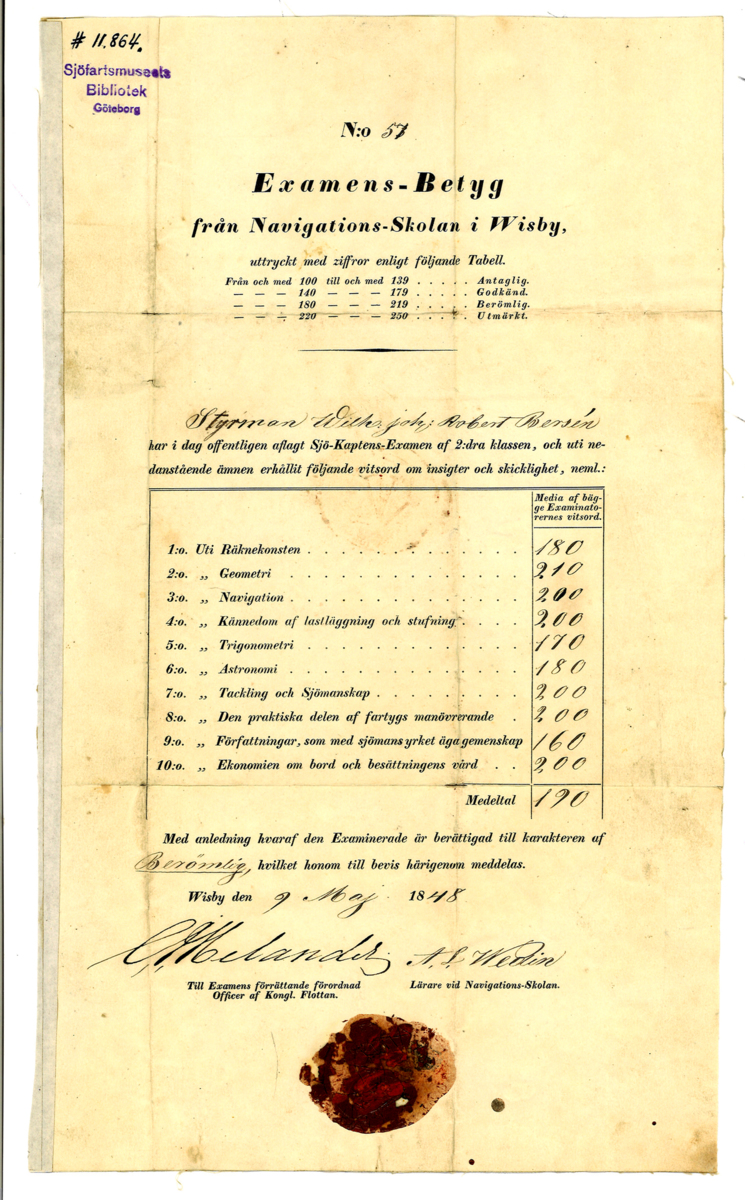 # 11.864.
Sjöfartsmuseets
Bibliotek
Göteborg
N:o 57
Examens-Betyg
från Navigations-Skolan i Wisby,
uttryckt med ziffror enligt följande Tabell.
Från och med 100 till och med 139 . . . . . Antaglig.
— — — 140 — — — 179 . . . . . Godkänd.
— — — 180 — — — 219 . . . . . Berömlig.
— — — 220 — — — 250 . . . . . Utmärkt.
Styrman Wilh: joh: Robert Bersén
har i dag offentligen aflagt Sjö-Kaptens-Examen af 2:dra klassen, och uti ne-
danstående ämnen erhållit följande vitsord om insigter och skicklighet, neml.:
Media af bäg-
ge Examinato-
rernes vitsord.
1:o. Uti Räknekonsten . . . . . . . . . . . . . 180
2:o. „ Geometri . . . . . . . . . . . . . 210
3:o. „ Navigation . . . . . . . . . . . . . 200
4:o. „ Kännedom af lastläggning och stufning . . . . 200
5:o. „ Trigonometri . . . . . . . . . . . . . 170
6:o. „ Astronomi . . . . . . . . . . . . . 180
7:o. „ Tackling och Sjömanskap . . . . . . . . . 200
8:o. „ Den praktiska delen af fartygs manövrerande . 200
9:o. „ Författningar, som med sjömansyrket äga gemenskap 160
10:o. „ Ekonomien om bord och besättningens vård . . 200
Medeltal 190
Med anledning hvaraf den Examinerade är berättigad till karakteren af
Berömlig, hvilket honom till bevis härigenom meddelas.
Wisby den 9 Maj 1848
Melander A. L. Wedin
Till Examens förrättande förordnad Lärare vid Navigations-Skolan.
Officer af Kongl. Flottan.